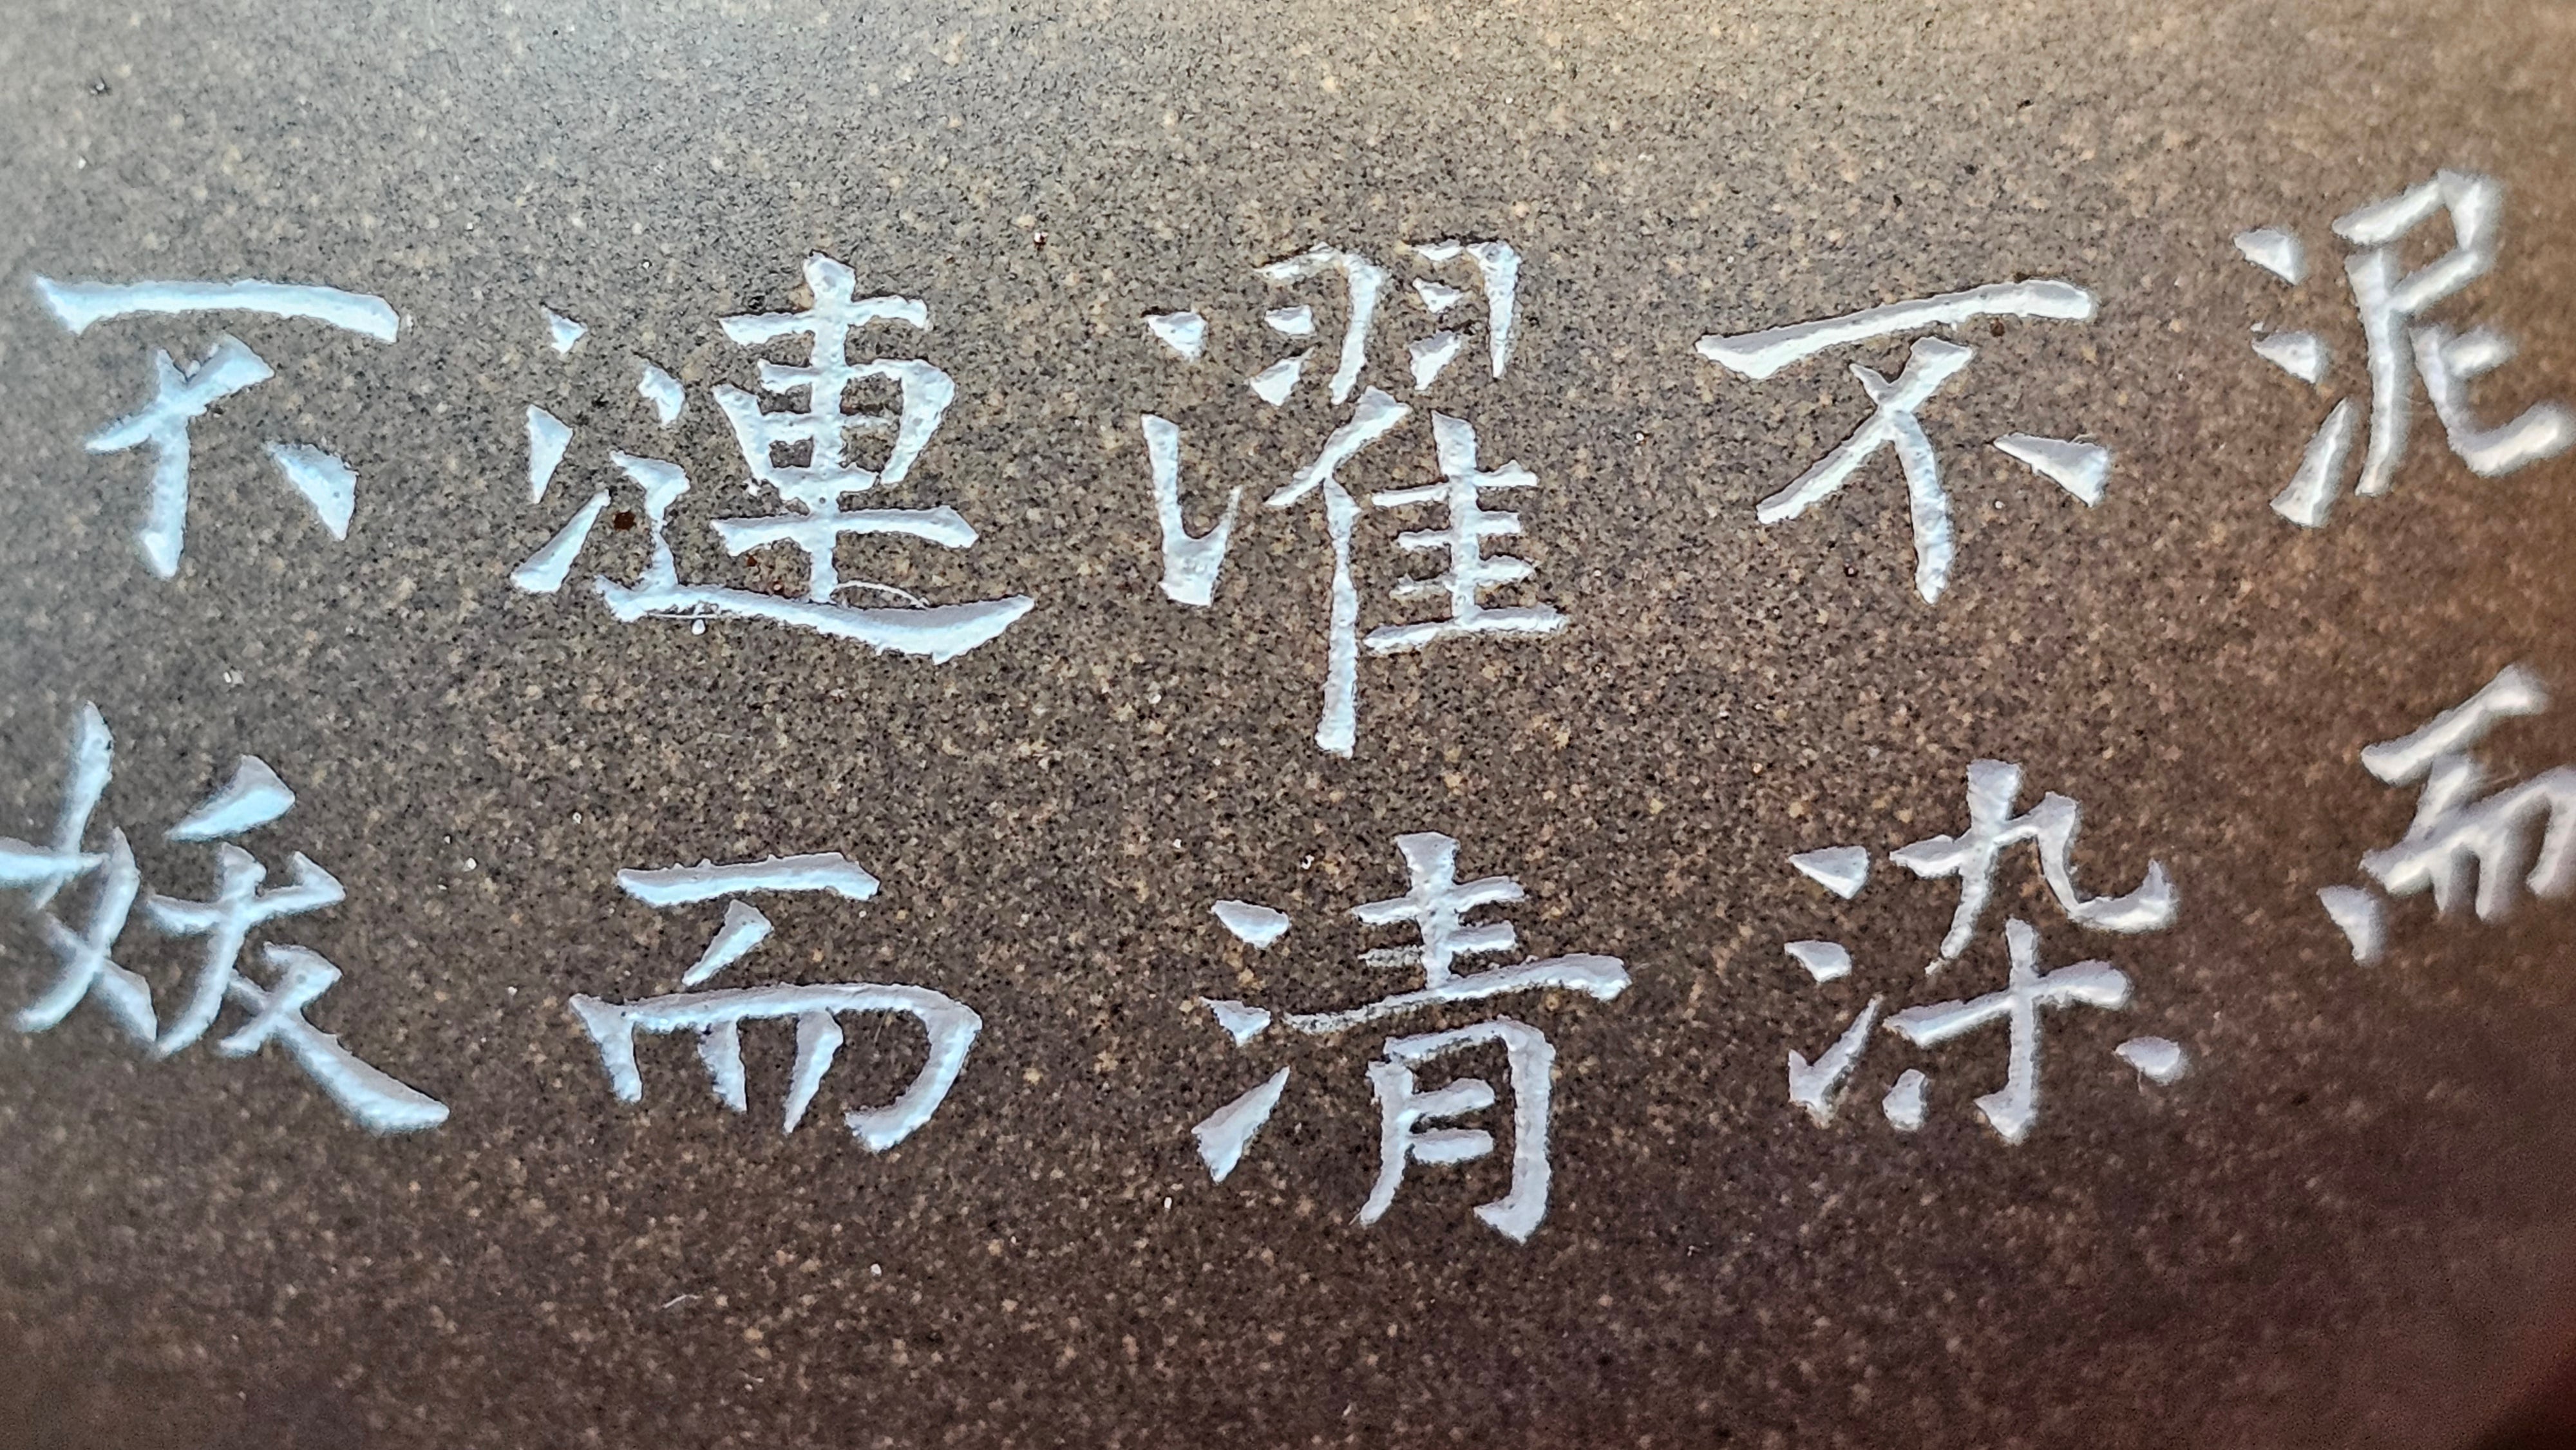 泥而
不染
濯清
漣而
不妖